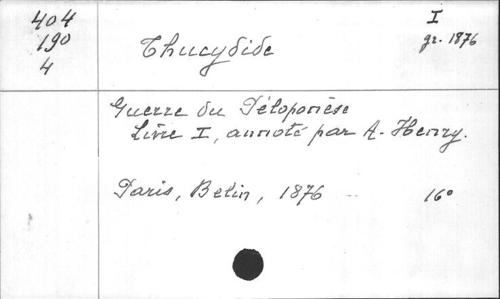 404
190
4
Thucydide
I
gr. 1876
Guerre du Péloponèse
Livre I, annoté par A. Henry.
Paris, Belin, 1876
16°